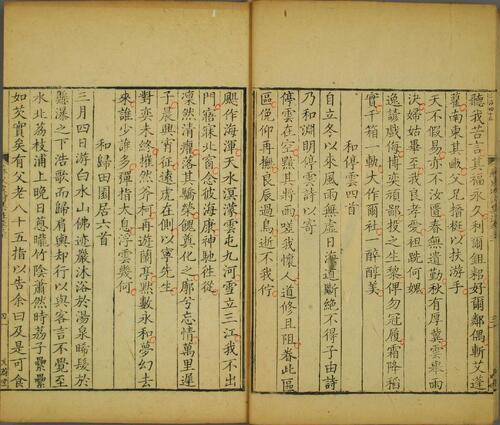 聽我苦言其福永久利爾鉏耜好爾鄰偶斬艾蓬
藋南東其畝父兄搢梃以抶游手
天不假易亦不汝匱春無遺勤秋有厚冀雲舉雨
決婦姑畢至我良孝愛袒跣何媿
逸諺戲侮博奕頑鄙投之生黎俾勿冠履霜降稻
實千箱一軌大作爾社一醉醇美
和停雲四首
自立冬以來風雨無虛日海道斷絶不得子由詩
乃和淵明停雲詩以寄
停雲在空黯其將雨嗟我懷人道修且阻眷此區
區俛仰再撫良辰過鳥逝不我佇
颶作海渾天水溟濛雲屯九河雪立三江我不出
門寤寐北窗念彼海康神馳往從
凜然清癯落其驕榮饋奠化之廓兮忘情萬里遲
子晨興宵征遠虎在側以寧先生
對奕未終摧然斧柯再遊蘭亭默數永和夢幻去
來誰少誰多彈指太息浮雲幾何
和歸田園居六首
三月四日游白水山佛迹巖沐浴於湯泉晞髮於
縣瀑之下浩歌而歸肩輿却行以與客言不覺至
水北荔枝浦上晚日蔥曨竹陰蕭然時荔子纍纍
如芡實矣有父老八十五指以告余曰及是可食